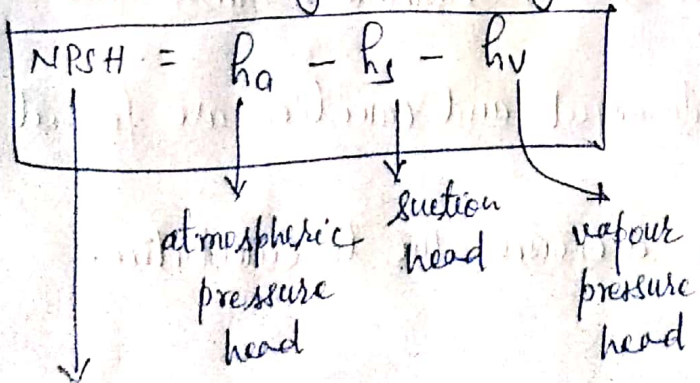 NPSH = ha - hs - hv
atmospheric pressure head
suction head
vapour pressure head